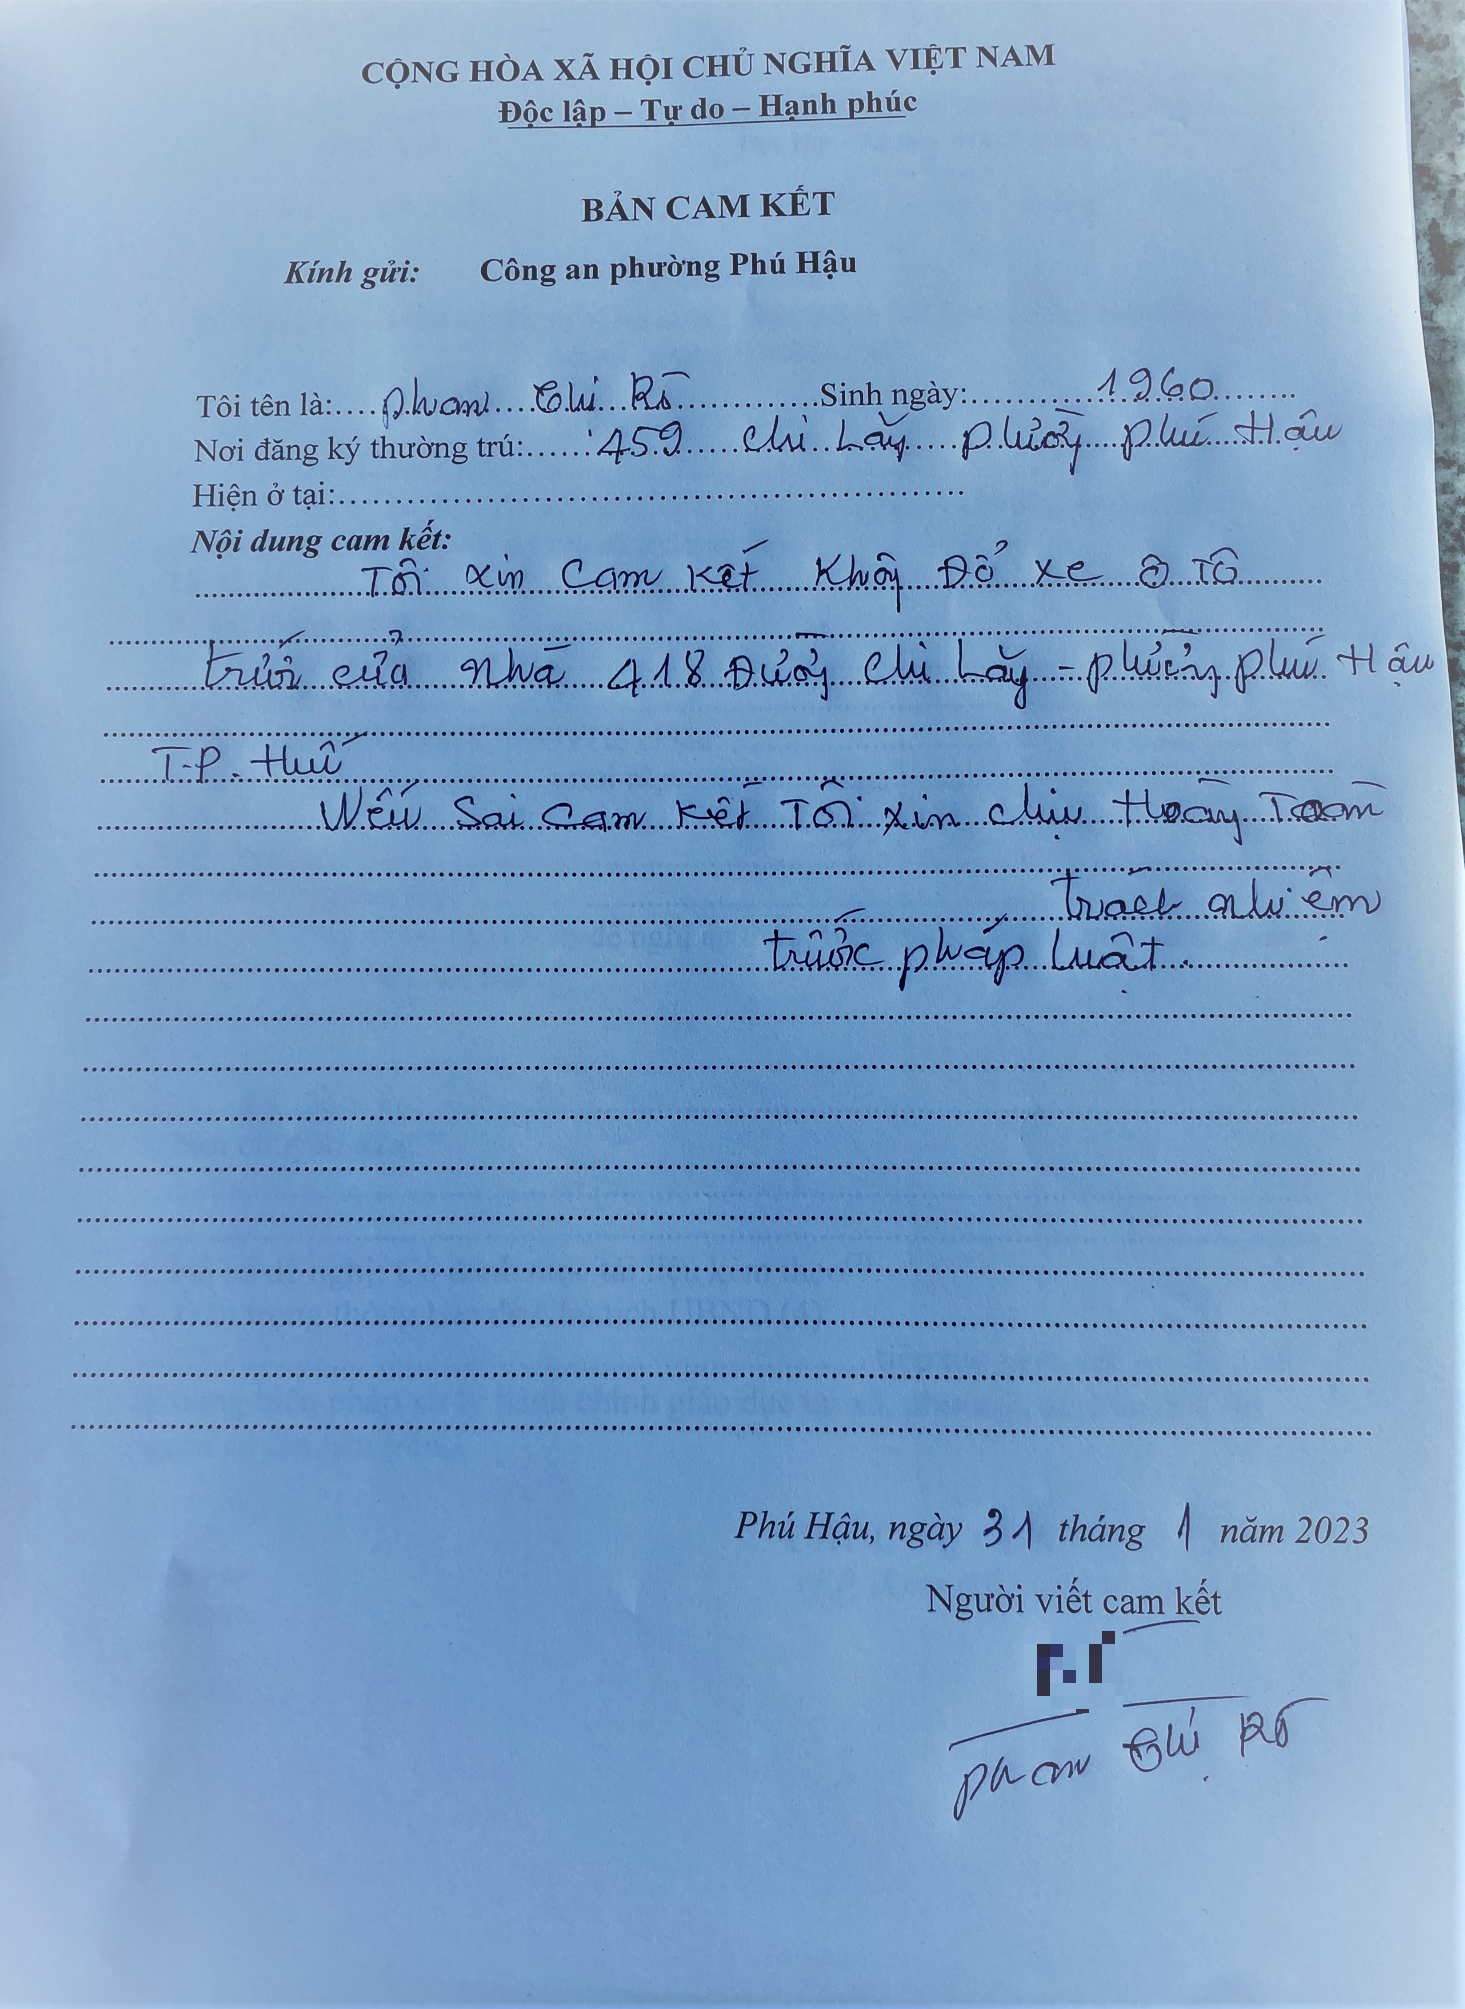 CỘNG HÒA XÃ HỘI CHỦ NGHĨA VIỆT NAM
Độc lập – Tự do – Hạnh phúc
BẢN CAM KẾT
Kính gửi: Công an phường Phú Hậu
Tôi tên là: phan Thị Rồ Sinh ngày: 1960
Nơi đăng ký thường trú: 459 chi Lăng phường phú Hậu
Hiện ở tại:
Nội dung cam kết:
Tôi xin cam kết Không Đổ xe ô Tô
trước cửa nhà 418 Đường chi Lăng - phường phú Hậu
T.P. Huế
Nếu sai cam kết Tôi xin chịu Hoàn Toàn
trách nhiệm
trước pháp luật.
Phú Hậu, ngày 31 tháng 1 năm 2023
Người viết cam kết
phan Thị Rồ